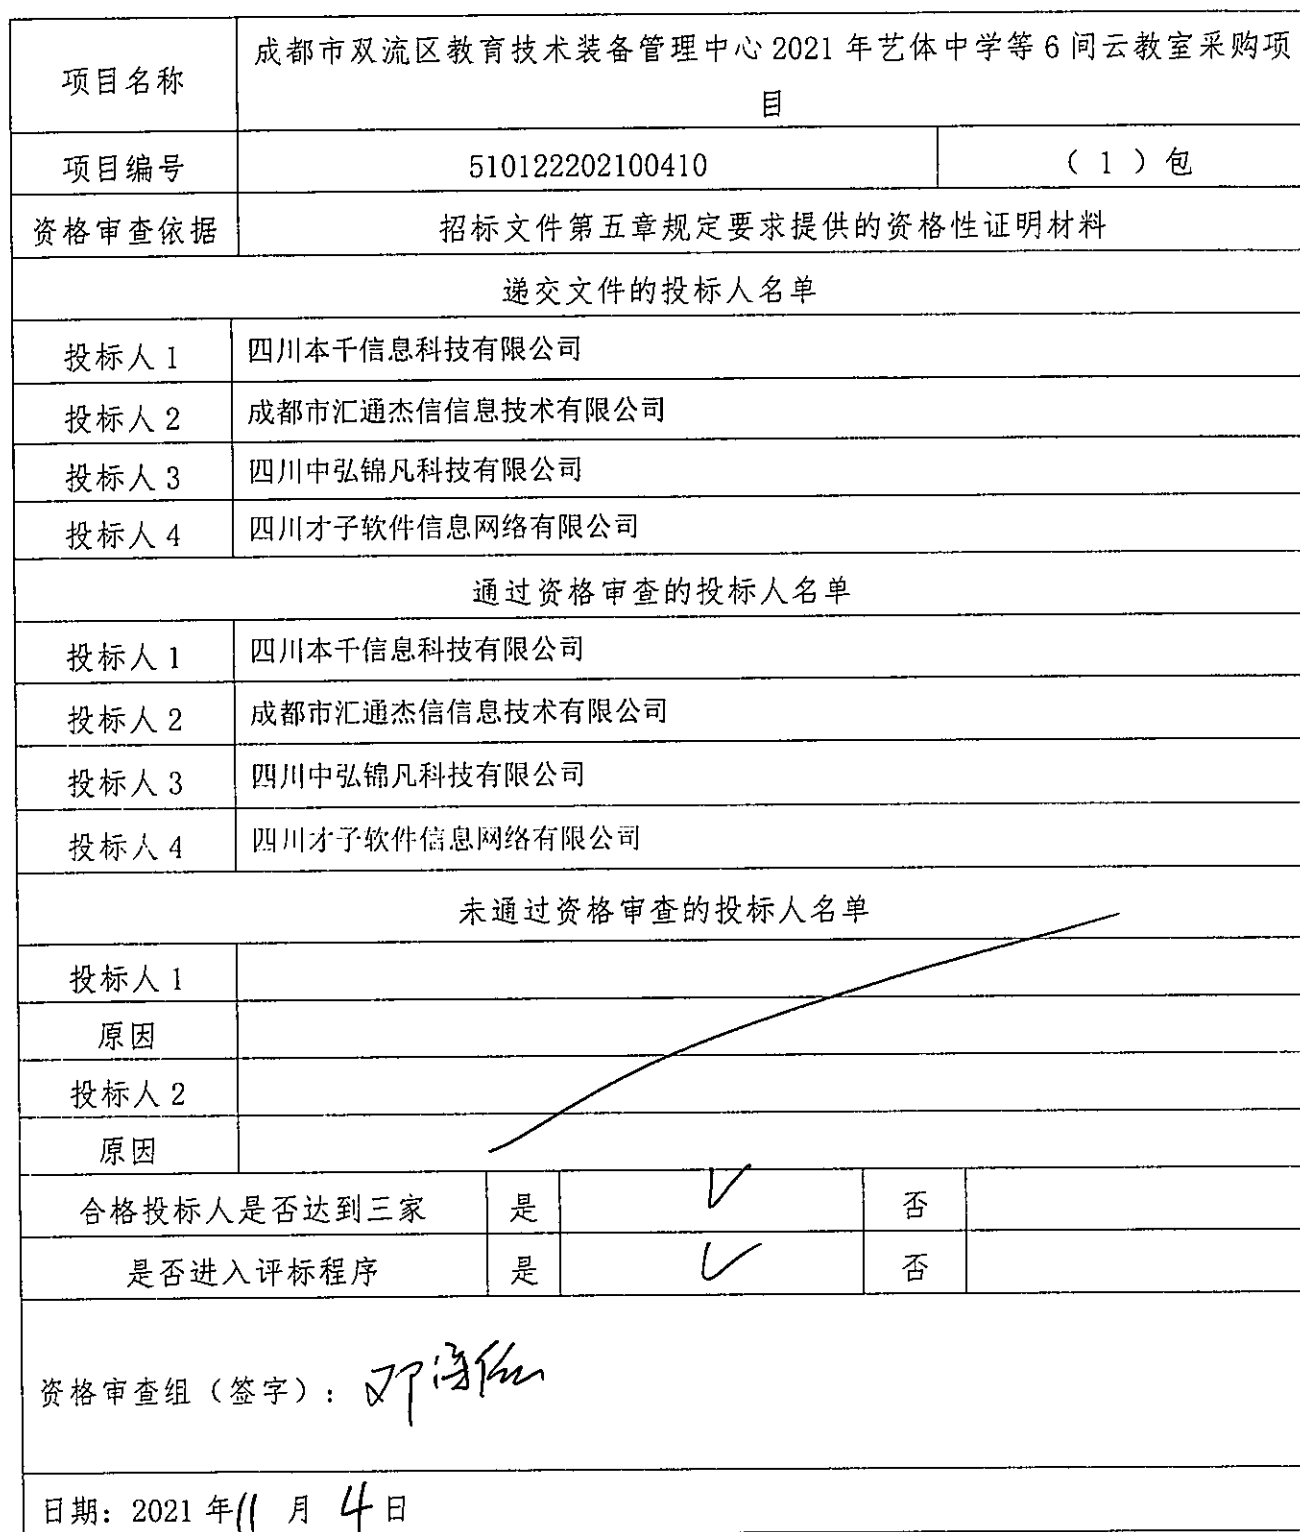 项目名称 成都市双流区教育技术装备管理中心 2021 年艺体中学等 6 间云教室采购项
目
项目编号 510122202100410 （ 1 ）包
资格审查依据 招标文件第五章规定要求提供的资格性证明材料
递交文件的投标人名单
投标人 1 四川本千信息科技有限公司
投标人 2 成都市汇通杰信信息技术有限公司
投标人 3 四川中弘锦凡科技有限公司
投标人 4 四川才子软件信息网络有限公司
通过资格审查的投标人名单
投标人 1 四川本千信息科技有限公司
投标人 2 成都市汇通杰信信息技术有限公司
投标人 3 四川中弘锦凡科技有限公司
投标人 4 四川才子软件信息网络有限公司
未通过资格审查的投标人名单
投标人 1
原因
投标人 2
原因
合格投标人是否达到三家 是 √ 否
是否进入评标程序 是 √ 否
资格审查组（签字）：邓
日期：2021 年 11 月 4 日